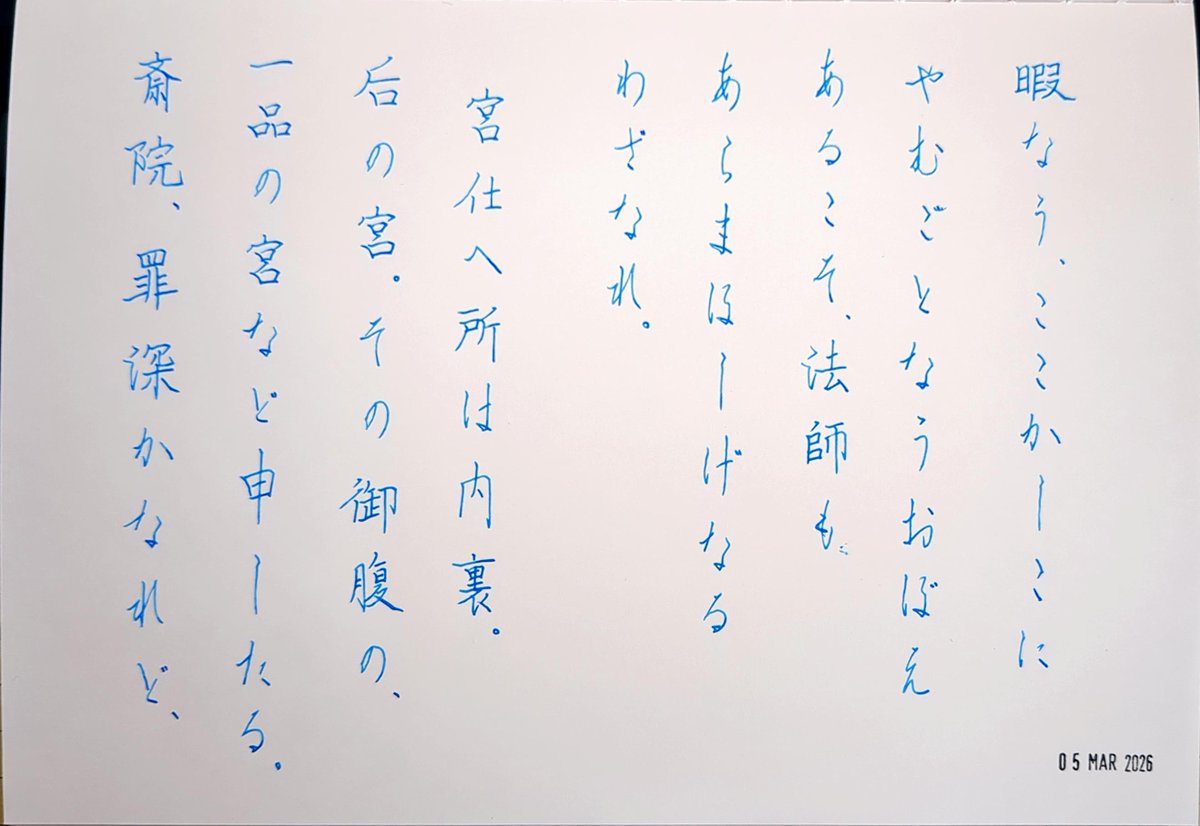 暇なう、ここかしこに
やむごとなうおぼえ
あるこそ、法師も、
あらまほしげなる
わざなれ。
宮仕へ所は内裏。
后の宮。その御腹の、
一品の宮など申したる。
斎院、罪深かなれど、
05 MAR 2026